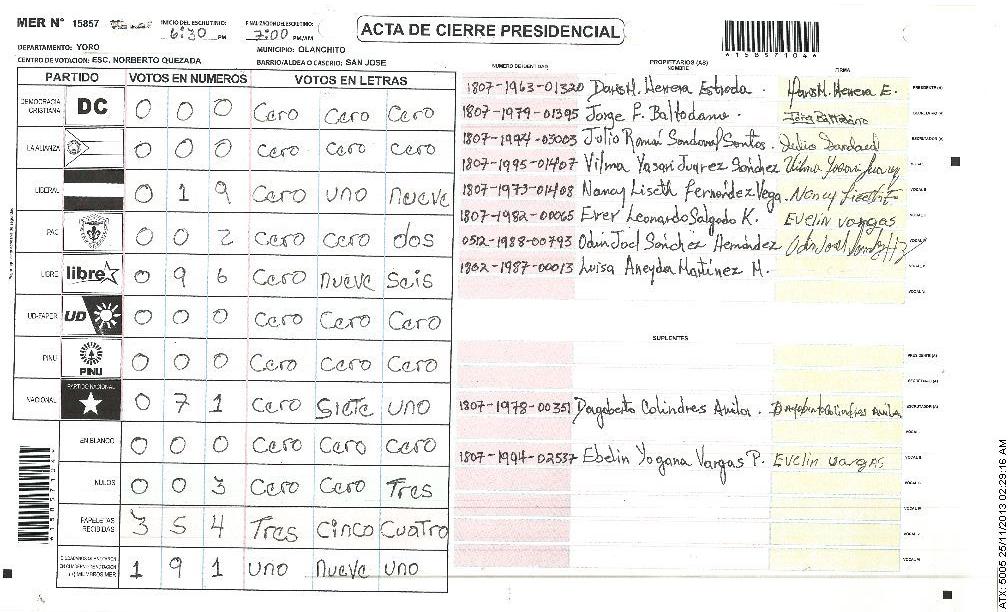 MER N° 15857 INICIO DEL ESCRUTINIO: 6:30 PM FINALIZACION DEL ESCRUTINIO: 7:00 PM/AM ACTA DE CIERRE PRESIDENCIAL
DEPARTAMENTO: YORO MUNICIPIO: OLANCHITO
CENTRO DE VOTACION: ESC. NORBERTO QUEZADA BARRIO/ALDEA O CASERIO: SAN JOSE
PARTIDO VOTOS EN NUMEROS VOTOS EN LETRAS
DEMOCRACIA CRISTIANA DC 0 0 0 Cero Cero Cero
LA ALIANZA 0 0 0 cero cero cero
LIBERAL 0 1 9 Cero uno nueve
PAC 0 0 2 Cero Cero dos
LIBRE libre 0 9 6 Cero nueve Seis
UD-FAPER UD 0 0 0 Cero Cero Cero
PINU PINU 0 0 0 Cero Cero Cero
NACIONAL PARTIDO NACIONAL 0 7 1 Cero Siete uno
EN BLANCO 0 0 0 Cero Cero Cero
NULOS 0 0 3 Cero Cero Tres
PAPELETAS RECIBIDAS 3 5 4 Tres Cinco Cuatro
MIEMBROS MER 1 9 1 uno nueve uno
NUMERO DE IDENTIDAD PROPIETARIOS (AS) NOMBRE FIRMA
1807-1963-01320 Daris H. Herrera Estrada. Daris H. Herrera E. PRESIDENTE (A)
1807-1979-01395 Jorge F. Baltodano. Jorge Baltodano SECRETARIO (A)
1807-1994-03003 Julio Román Sandoval Santos. Julio Sandoval ESCRUTADOR (A)
1807-1995-01407 Vilma Yasari Juarez Sánchez Vilma Yasari Juarez VOCAL I
1807-1973-01408 Nancy Liseth Fernández Vega. Nancy Lizeth F VOCAL II
1807-1982-00065 Ever Leonardo Salgado K. Evelin vargas
0512-1988-00793 Odin Joel Sánchez Hernández
1802-1987-00013 Luisa Aneyda Martinez M.
SUPLENTES
PRESIDENTE (A)
SECRETARIO (A)
1807-1978-00351 Dagoberto Colindres Avila. Dagoberto Colindres Avila ESCRUTADOR (A)
VOCAL I
1807-1994-02537 Ebelin Yogana Vargas P. Evelin vargas VOCAL II
615857104
ATX: 5005 25/11/2013 02:29:16 AM